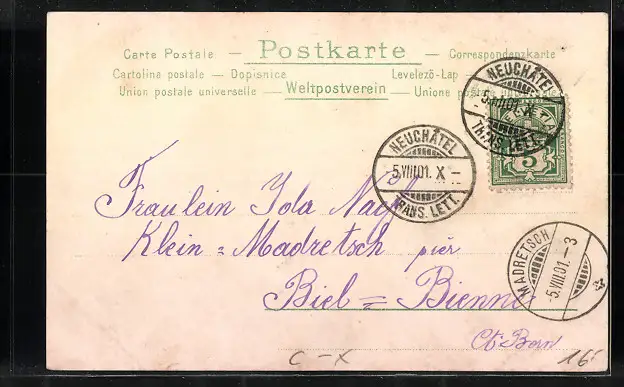 Carte Postale — Postkarte — Correspondenzkarte
Cartolina postale — Dopisnice Levelező-Lap
Union postale universelle — Weltpostverein — Unione postale universale
NEUCHÂTEL
-5.VIII.01. X
TRANS. LETT.
HELVETIA
5
NEUCHÂTEL
-5.VIII.01. X -
TRANS. LETT.
Fraulein Iola
Klein = Madretsch
Biel = Bienne
Ct. Bern
MADRETSCH
-5.VIII.01.-3
C-X
16.-